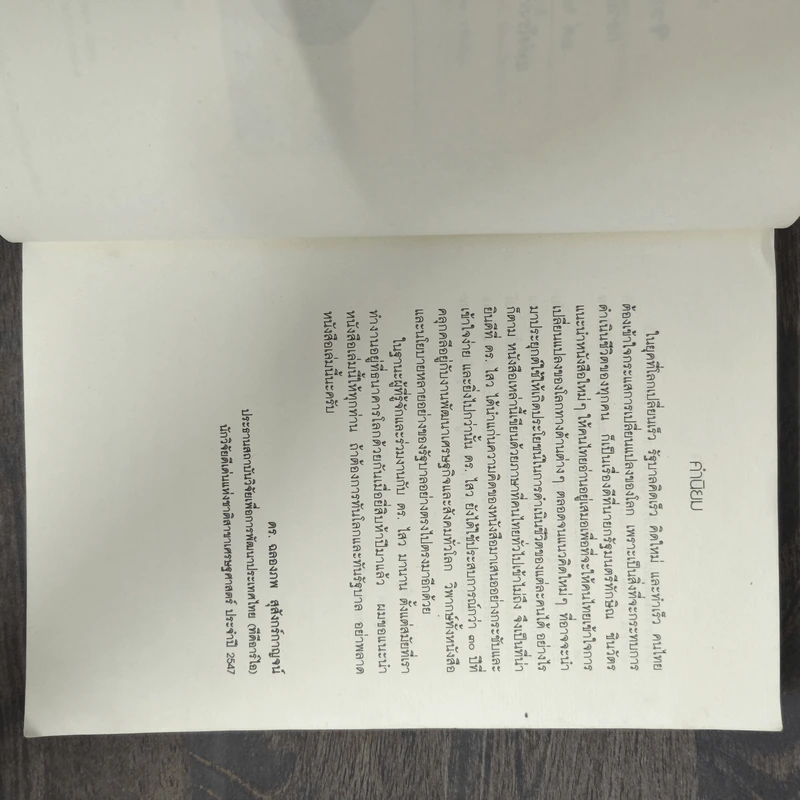 คำนิยม
ในยุคที่โลกเปลี่ยนเร็ว รัฐบาลคิดเร็ว คิดใหม่ และทำเร็ว คนไทย
ต้องเข้าใจกระแสการเปลี่ยนแปลงของโลก เพราะเป็นสิ่งที่จะกระทบการ
ดำเนินชีวิตของทุกคน ก็เป็นเรื่องดีที่นายกรัฐมนตรีทักษิณ ชินวัตร
แนะนำหนังสือใหม่ๆ ให้คนไทยอ่านอยู่เสมอเพื่อที่จะให้คนไทยเข้าใจการ
เปลี่ยนแปลงของโลกทางด้านต่างๆ ตลอดจนแนวคิดใหม่ๆ ที่อาจจะนำ
มาประยุกต์ใช้ให้เกิดประโยชน์ในการดำเนินชีวิตของแต่ละคนได้ อย่างไร
ก็ตาม หนังสือเหล่านี้เขียนด้วยภาษาที่คนไทยทั่วไปเข้าไม่ถึง จึงเป็นที่น่า
ยินดีที่ ดร. ไสว ได้นำแก่นความคิดของหนังสือมาเสนออย่างกระชับและ
เข้าใจง่าย และยิ่งไปกว่านั้น ดร. ไสว ยังได้ใช้ประสบการณ์กว่า ๓๐ ปีที่
คลุกคลีอยู่กับงานพัฒนาเศรษฐกิจและสังคมทั่วโลก วิพากษ์ทั้งหนังสือ
และนโยบายหลายอย่างของรัฐบาลอย่างตรงไปตรงมาอีกด้วย
ในฐานะผู้ที่รู้จักและร่วมงานกับ ดร. ไสว มานาน ตั้งแต่สมัยที่เรา
ทำงานอยู่ที่ธนาคารโลกด้วยกันเมื่อยี่สิบห้าปีมาแล้ว ผมขอแนะนำ
หนังสือเล่มนี้ให้ทุกท่าน ถ้าต้องการทันโลกและทันรัฐบาล อย่าพลาด
หนังสือเล่มนี้นะครับ
ดร. ฉลองภพ สุสังกร์กาญจน์
ประธานสถาบันวิจัยเพื่อการพัฒนาประเทศไทย (ทีดีอาร์ไอ)
นักวิจัยดีเด่นแห่งชาติสาขาเศรษฐศาสตร์ ประจำปี 2547